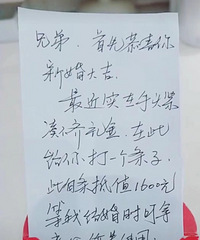 兄弟,首先恭喜你
新婚大吉.
最近实在手头紧
凑不齐礼金,在此
给你打一个条子.
此白条抵值1600元
等我结婚时可拿